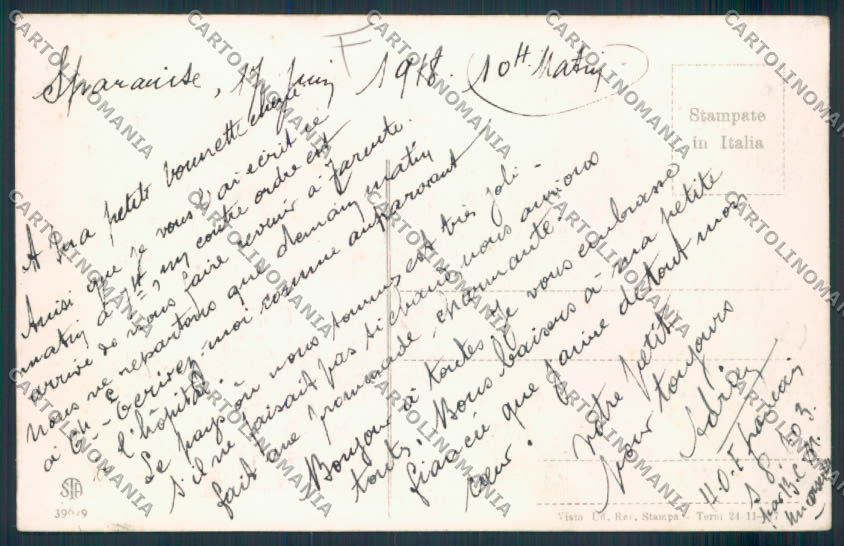 Sparanise, 17 juin 1918. 10H Matin
F
A Sera petite Vonnette chérie
Ainsi que je vous l'ai écrit ce
matin à 7H, un contre ordre est
arrivé de nous faire revenir à Tarente.
Nous ne repartons que demain matin
à 6h - Ecrivez-moi comme auparavant
à l'hôpital.
Le pays où nous sommes est très joli -
s'il ne faisait pas si chaud nous aurions
fait une promenade charmante.
Bonjour à toutes. Je vous embrasse
toutes. Bons baisers à ma petite
fiancée que j'aime de tout mon
cœur.
Votre petit
pour toujours
Adrien
H.O.F français
S.P. 503
par B.C.M.
Stampate
in Italia
STA
39679
Visto Uff. Rev. Stampa - Terni 24-11-17
CARTOLINOMANIA